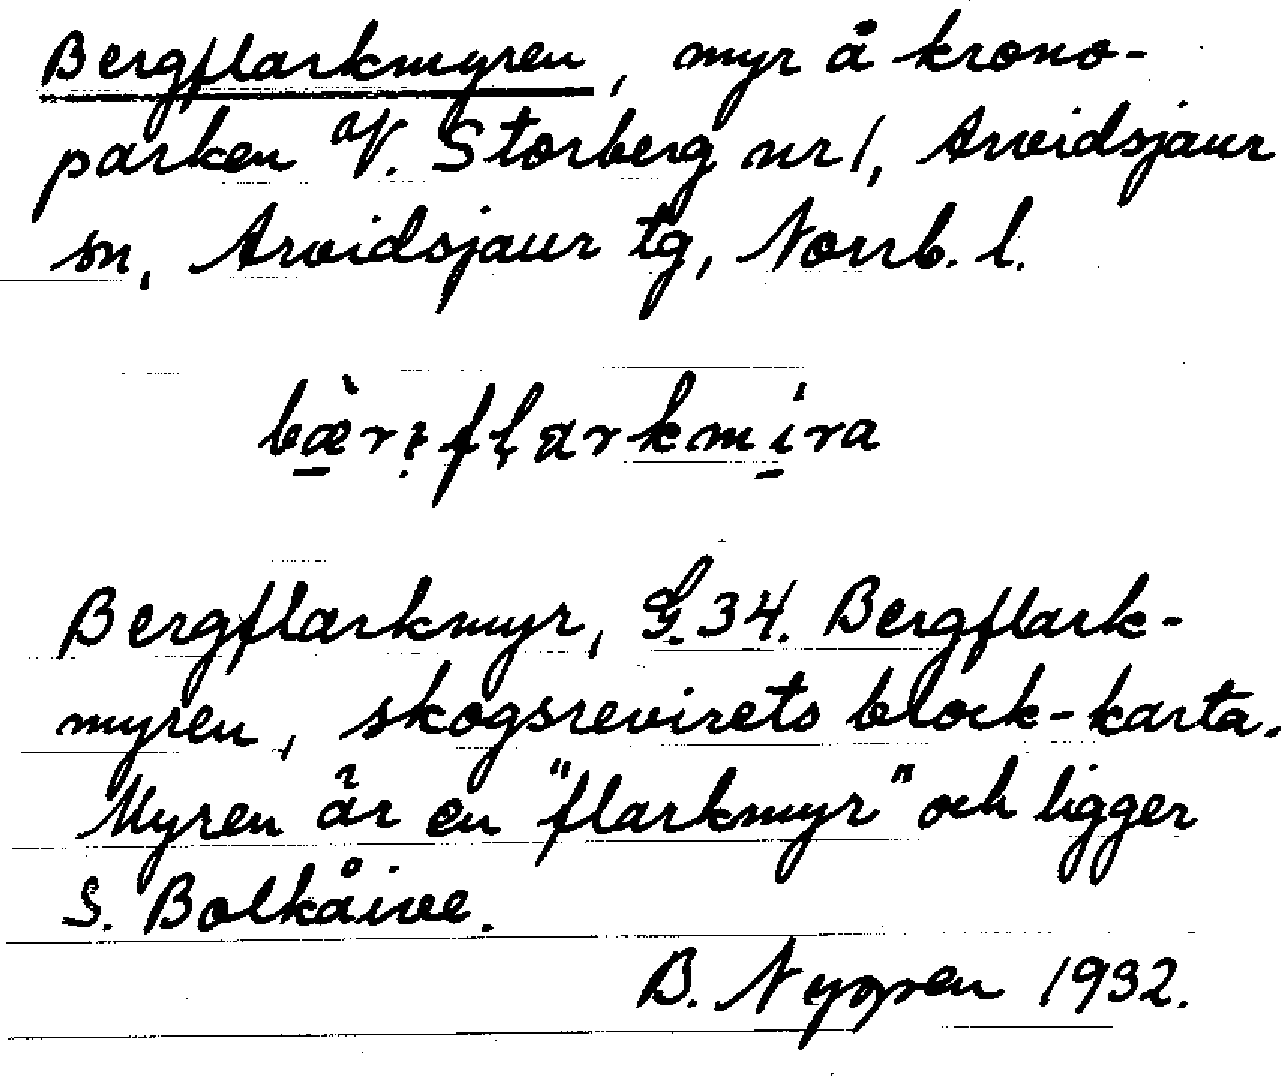 Bergflarkmyren, myr å krono-
parken av V. Storberg nr 1, Arvidsjaur
sn, Arvidsjaur tg, Norrb. l.
Bergflarkmyr, G.34. Bergflark-
myren, skogsrevirets block-karta.
Myren är en "flarkmyr" och ligger
S. Bolkåive.
B. Nygren 1932.